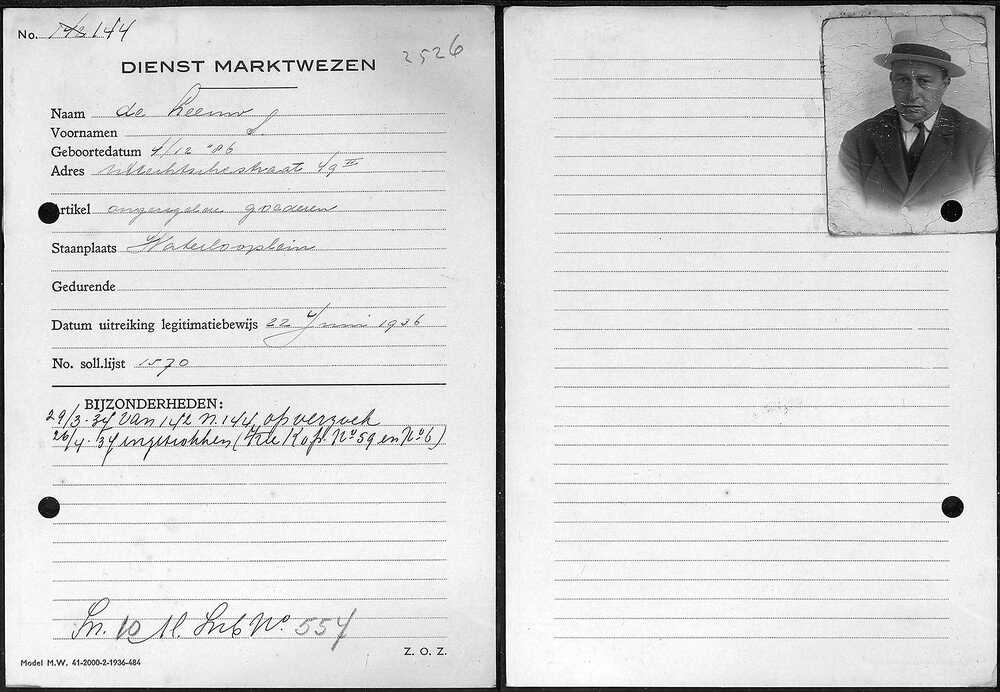 No. 142 144
2526
DIENST MARKTWEZEN
Naam de Leeuw
Voornamen J
Geboortedatum 4/12 '86
Adres Utrechtschestraat 49 II
Artikel ongeregelde goederen
Staanplaats Waterlooplein
Gedurende
Datum uitreiking legitimatiebewijs 22 Juni 1936
No. soll.lijst 1570
BIJZONDERHEDEN:
29/3-37 van 142 n. 144, op verzoek
26/4-37 ingetrokken (Zie No 59 en No 6)
10 No. 554
Z. O. Z.
Model M.W. 41-2000-2-1936-484